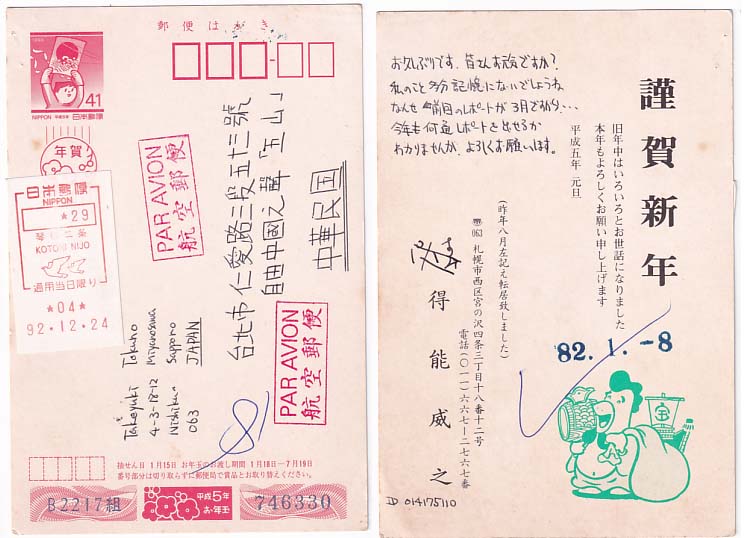 郵便はがき
1993
41
NIPPON 平成5年 日本郵便
年賀
日本郵便
NIPPON
*29
琴似二条
KOTONI NIJO
適用当日限り
*04*
92.12.24
PAR AVION
航空郵便
台北市仁愛路三段五十三號
自由中國之聲「玉山」
中華民国
PAR AVION
航空郵便
Takeyuki Tokuno
4-3-18-12 Miyanosawa
Nishiku Sapporo
063 JAPAN
抽せん日 1月15日 お年玉のお渡し期間 1月18日―7月19日
番号部分は切り取らずに郵便局で賞品とお取り替えください。
B2217組
平成5年
お年玉
746330
お久しぶりです。皆さんお元気ですか?
私のこと多分記憶にないでしょうね。
なんせ前回のレポートが3月ですから・・・
今年も何通レポートを出せるか
わかりませんが、よろしくお願いします。
謹賀新年
旧年中はいろいろとお世話になりました
本年もよろしくお願い申し上げます
平成五年 元旦
(昨年八月左記え転居致しました)
〒063 札幌市西区宮の沢四条三丁目十八番十二号
電話(〇一一)六六七―二七六七番
得能威之
82.1.-8
宝
ID 014175110